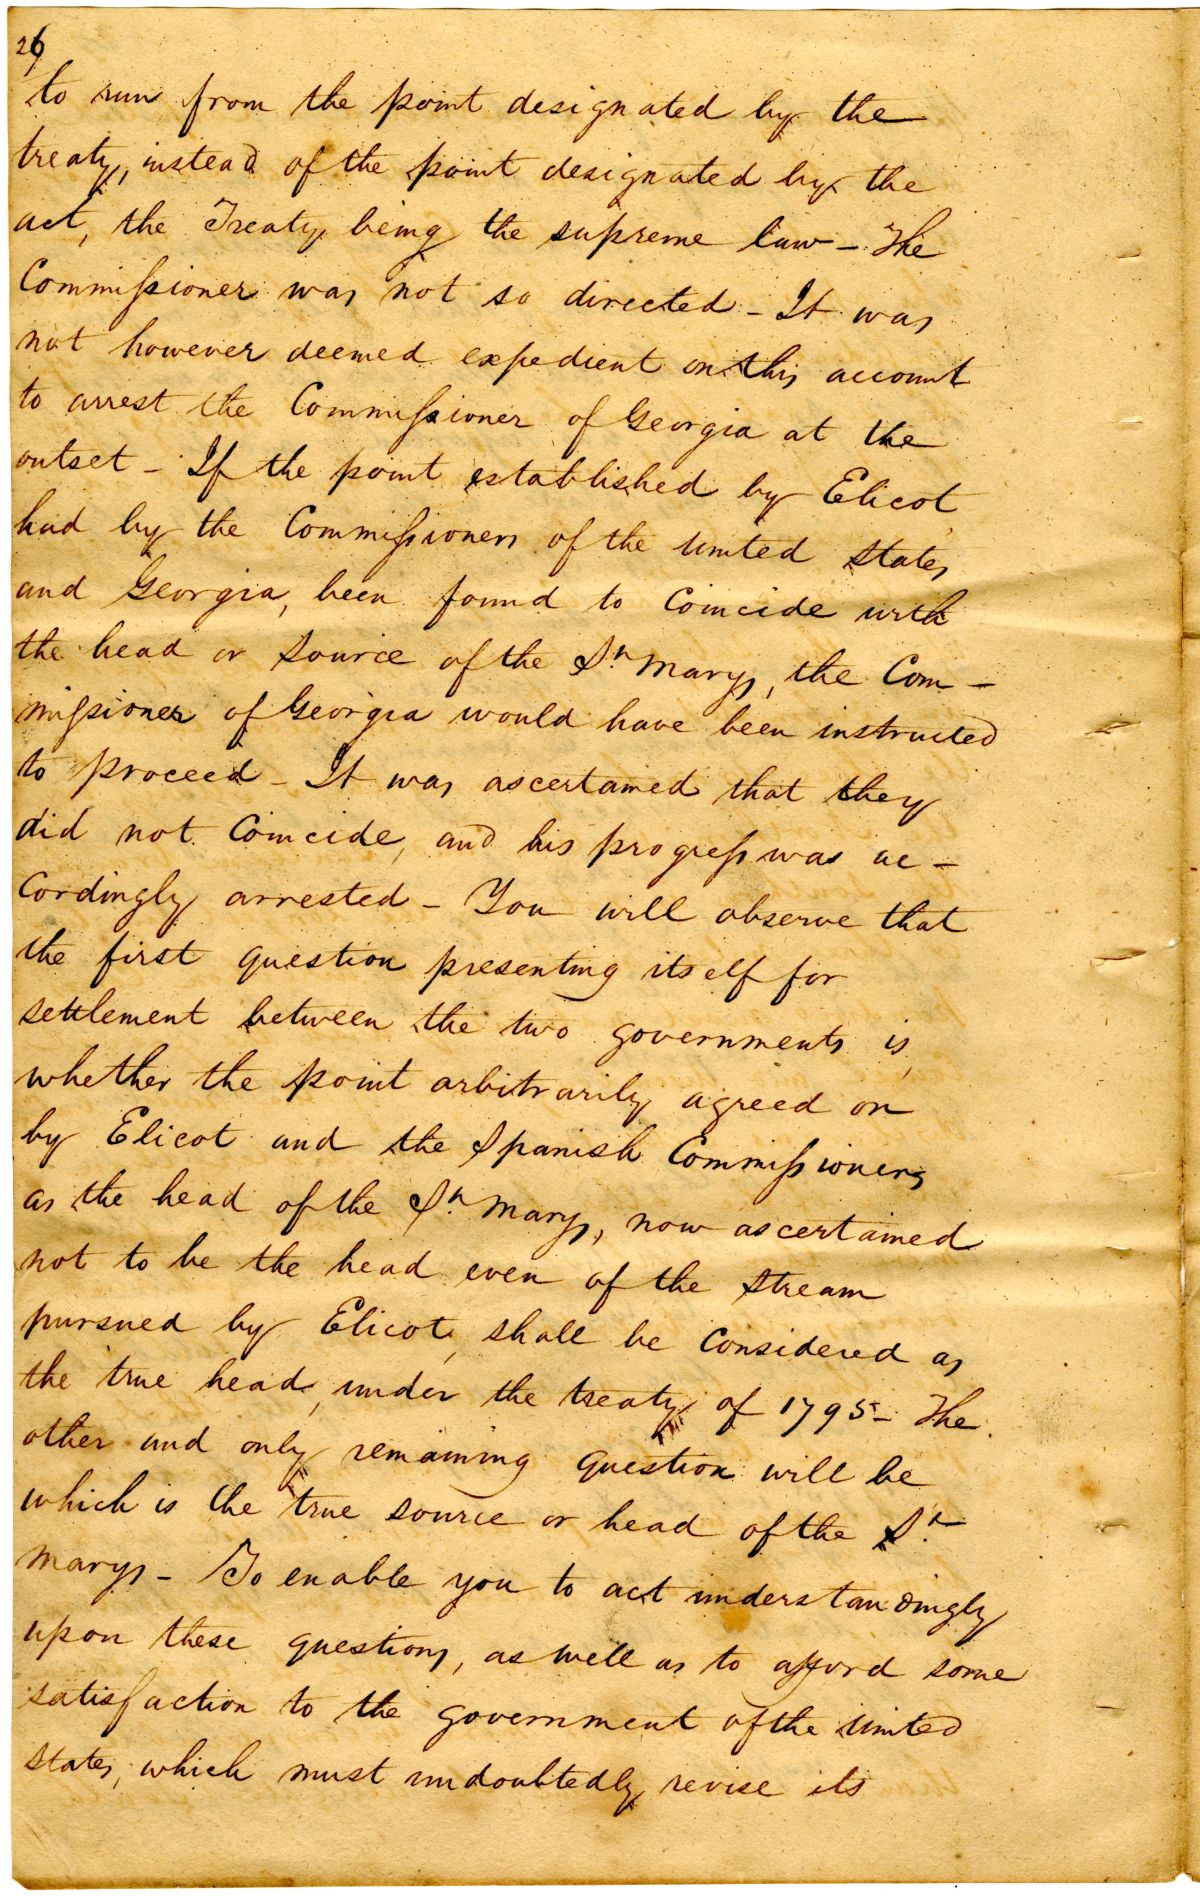 26
to run from the point designated by the
treaty, instead of the point designated by the
act, the Treaty being the supreme law - The
Commissioner was not so directed - It was
not however deemed expedient on this account
to arrest the Commissioner of Georgia at the
outset - If the point established by Elicot
had by the Commissioners of the United States
and Georgia, been found to Coincide with
the head or source of the St. Marys, the Com-
missioner of Georgia would have been instructed
to proceed - It was ascertained that they
did not Coincide, and his progress was ac-
cordingly arrested - You will observe that
the first question presenting itself for
settlement between the two governments is,
whether the point arbitrarily agreed on
by Elicot and the Spanish Commissioners
as the head of the St. Marys, now ascertained
not to be the head even of the stream
pursued by Elicot, shall be Considered as
the true head, under the treaty of 1795 - The
other and only remaining question will be
which is the true source or head of the St.
Marys - To enable you to act understandingly
upon these questions, as well as to afford some
satisfaction to the government of the United
States, which must undoubtedly revise its